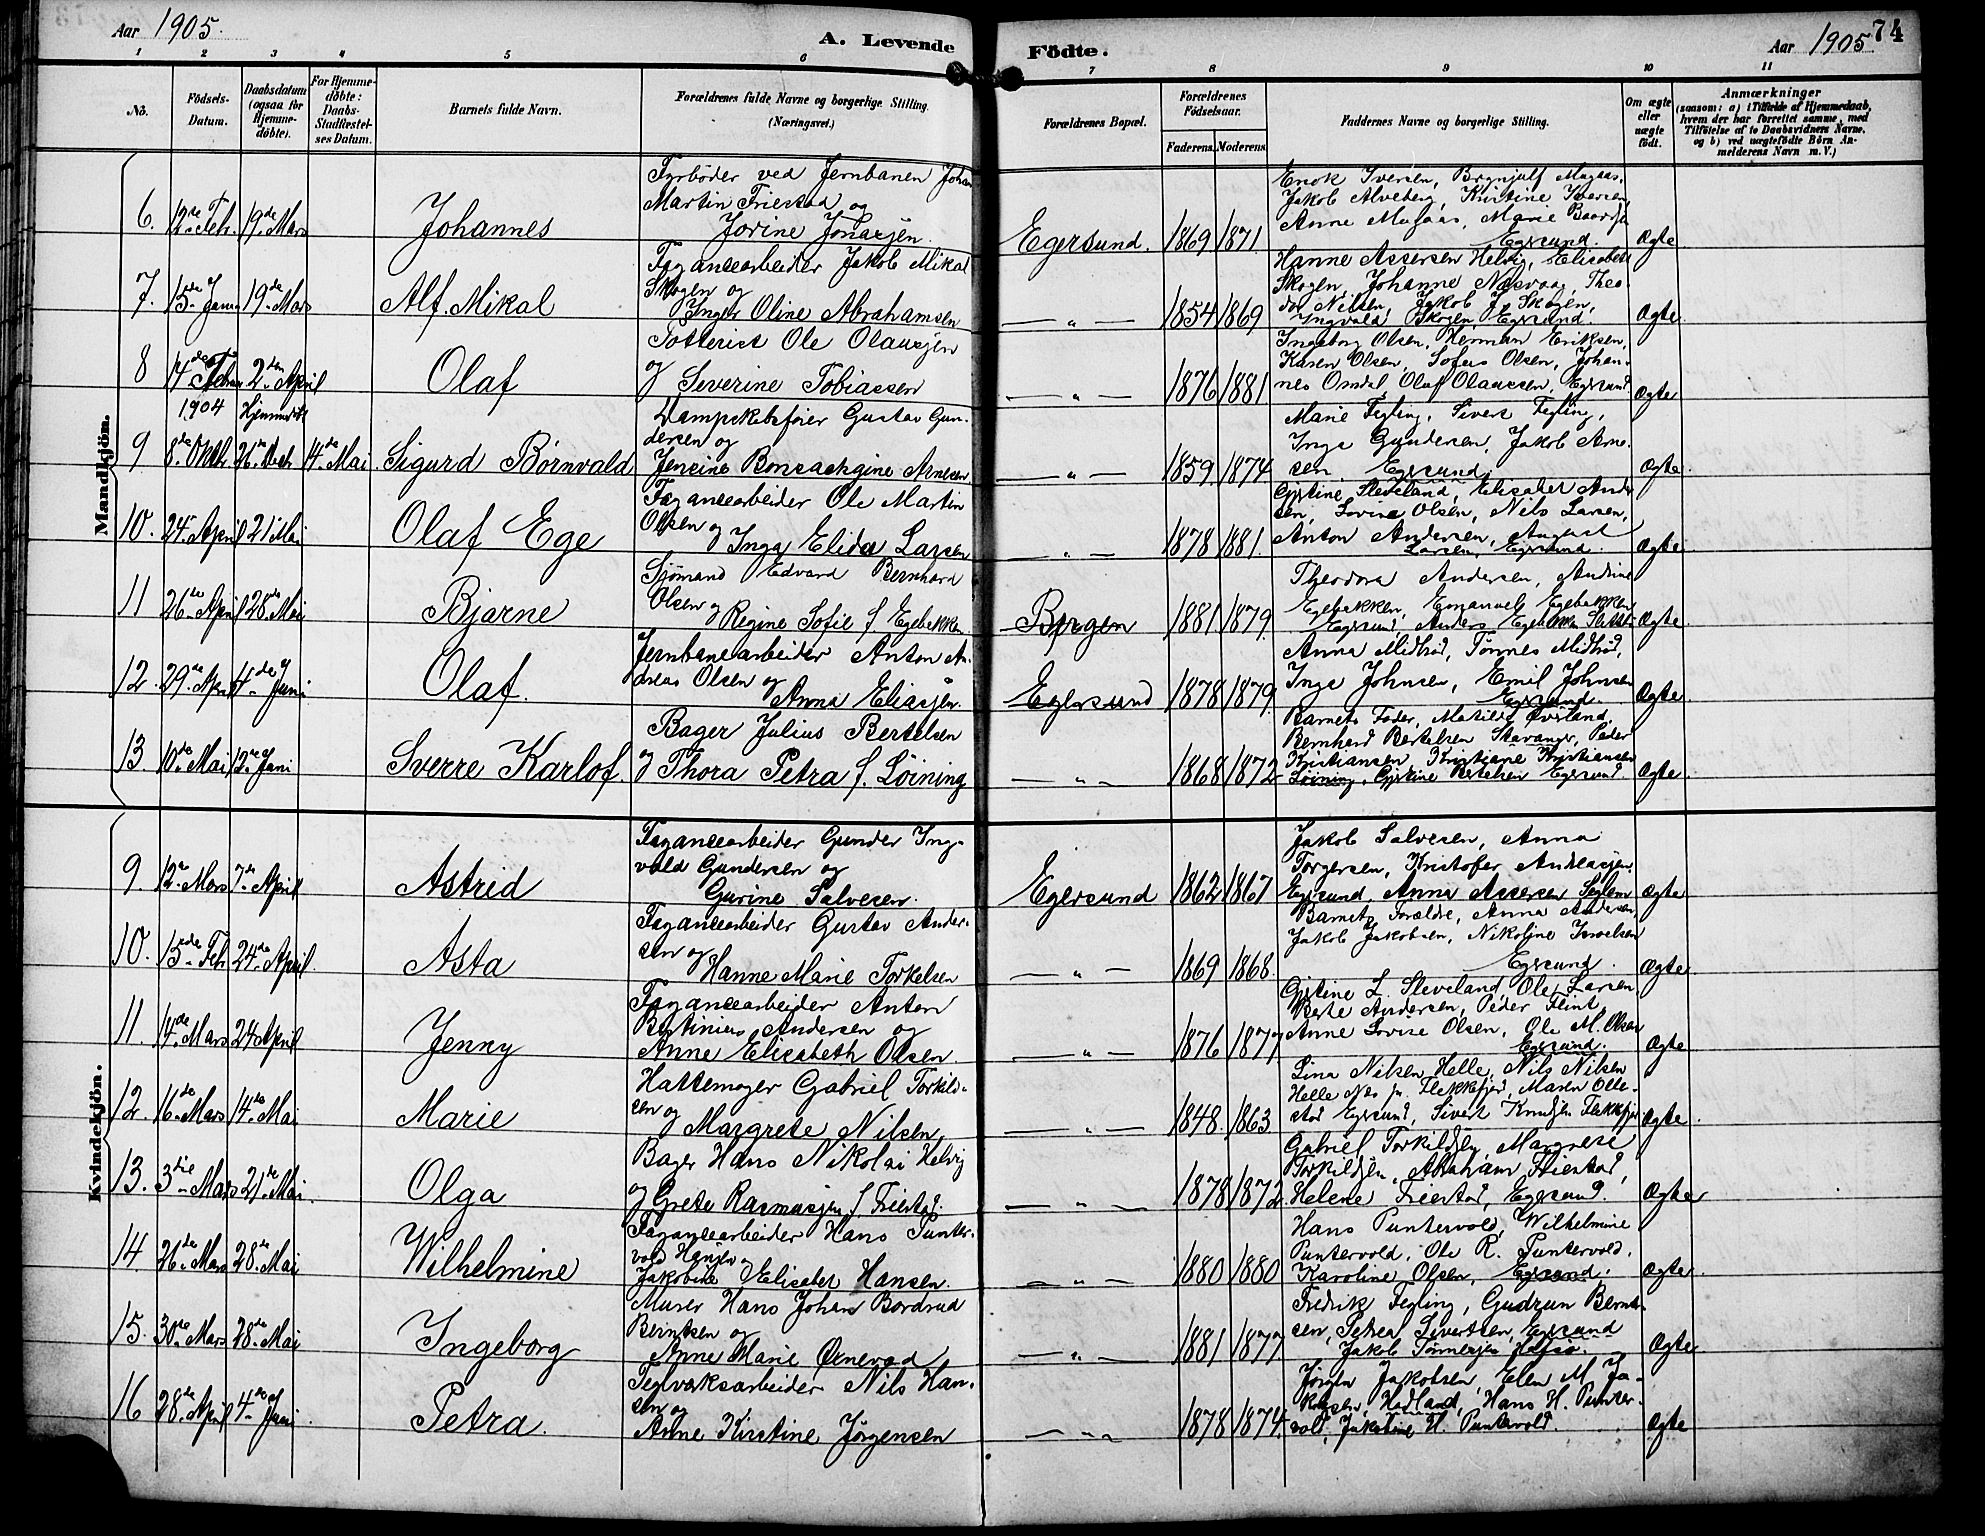 Aar 1905.
A. Levende Födte.
Aar 1905.
74
1 2 3 4 5 6 7 8 9 10 11
No.
Födsels-Datum.
Daabsdatum (ogsaa for Hjemme-döbte).
For Hjemme-döbte: Daabs-Stadfæstel-ses Datum.
Barnets fulde Navn.
Forældrenes fulde Navne og borgerlige Stilling. (Næringsvei.)
Forældrenes Bopæl.
Forældrenes Födselsaar.
Faderens. Moderens.
Faddernes Navne og borgerlige Stilling.
Om ægte eller uægte födt.
Anmærkninger
(saasom: a) i Tilfælde af Hjemmedaab, hvem der har forrettet samme, med Tilföielse af to Daabsvidners Navne, og b) ved uægtefödte Börn An-melderens Navn m. V.)
Mandkjön.
6. 12te Feb. 19de Mars Johannes
Fyrbøder ved Jernbanen Johan
Martin Friestad og
Jorine Jonassen.
Egersund. 1869 1871
Enok Iversen,
Jakob Alveberg, Kristine Iversen,
Anne Magaas, Marie
Egersund. Ægte
7. 15de Janr 19de Mars Alf Mikal
Fayancearbeider Jakob Mikal
Skogen og
Inger Oline Abrahamsen
— " — 1854 1869
Hanne Assersen Helvig, Elisabeth
Skogen, Johanne Næsvaag, Theo-
dor Nilsen, Jakob J. Skogen,
Ingvald Skogen, Egersund. Ægte
8 14de Febr. 2den April Olaf
Potterist Ole Olaussen
og Severine Tobiassen
— " — 1876 1881
Ingeborg Olsen, Herman Eriksen,
Karen Olsen, Sofus Olsen, Johan-
nes Omdal, Olaf Olaussen, Egersund Ægte
1904 Hjemmedøbt
9 8de Oktbr. 26de Decb. 14de Mai Sigurd Børnvald
Dampskibsfører Gustav Gun-
dersen og
Jensine Bonsachgine Arnesen
— " — 1859 1874
Marie Fegling, Sivert Fegling,
Inga Gundersen, Jakob Arne-
sen, Egersund. Ægte.
10. 24de April 21 Mai Olaf Ege
Fayancearbeider Ole Martin
Olsen og Inga Elida Larsen
— " — 1878 1881.
Gjertine Sleveland, Elisabet Ander
sen, Lovise Olsen, Nils Larsen,
Anton Andersen, August
Larsen, Egersund. Ægte
11 26de April 28de Mai Bjarne
Sjømand Edvard Bernhard
Olsen og Regine Sofie f. Egebakken
Bergen 1881 1879
Theodora Andersen, Andrine
Egebakken, Emanuel Egebakken
Egersund, Anders Egebakken Ægte
12. 29de April 4de Juni Olaf.
Jernbanearbeider Anton An-
dreas Olsen og
Anna Eliassen.
Egersund 1878 1879
Anna Midbrød, Tønnes Midbrød,
Inga Johnsen, Emil Johnsen
Egersund. Ægte
13. 10de Mai 12te Juni Sverre Karlof
Bager Julius Bertelsen
og Thora Petra f. Løining
— " — 1868 1872
Barnets Fader, Matilde Øvrland,
Bernhard Bertelsen Stavanger, Peder
Kristiansen, Kristiane Kristiansen
Løining, Gjertine Bertelsen Egersund Ægte.
Kvindekjön.
9 12te Mars 7de April Astrid
Fayancearbeider Gunder Ing-
vald Gundersen og
Gurine Salvesen.
Egersund 1862 1867
Jakob Salvesen, Anna
Torgersen, Kristofer Andreassen
Egersund, Anna Assersen Seglem Ægte
10. 15de Feb. 24de April. Asta
Fayancearbeider Gustav Ander-
sen og
Hanne Marie Torkelsen
— " — 1869 1868.
Barnets Forældre, Anna Andersen,
Jakob Jakobsen, Nikoline Israelsen
Egersund. Ægte
11. 14de Mars 24de April Jenny
Fayancearbeider Anton
Bertinius Andersen og
Anne Elisabeth Olsen.
— " — 1876 1877
Gjertine L. Sleveland, Ole Larsen,
Berte Andersen, Peder Flint
Anne Lovise Olsen, Ole M. Olsen
Egersund. Ægte
12 16de Mars 14de Mai Marie
Hattemager Gabriel Torkild-
sen og
Margrete Nilsen
— " — 1848. 1863
Lina Nilsen Helle, Nils Nilsen
Helle Flekkefjord, Maren Olle-
stad Egersund, Sivert Knudsen Flekkefj. Ægte.
13. 3die Mars 21de Mai. Olga
Bager Hans Nikolai Helvig
og Grete Rasmussen f. Friestad.
— " — 1878 1872
Gabriel Torkildsen, Margrete
Torkildsen, Abraham Friestad,
Helene Friestad, Egersund. Ægte
14. 26de Mars 28de Mai Wilhelmine
Fayancearbeider Hans Punter-
vold Hansen og
Jakobine Elisabet Hansen.
— " — 1880 1880
Hans Puntervold, Wilhelmine
Puntervold, Ole R. Puntervold,
Karoline Olsen, Egersund. Ægte.
15. 30de Mars 28de Mai Ingeborg
Murer Hans Johan Bordrud
Berntsen og
Anne Marie Ørnevad
— " — 1881 1877
Fredrik Fegling, Gudrun Bernt-
sen, Petrea Sivertsen, Egersund
Jakob Tønnessen Ægte
16 28de April 4de Juni Petra.
Teglværksarbeider Nils Han-
sen og
Anne Kirstine Jörgensen
— " — 1878 1874.
Jörgen Jakobsen, Elen M. Ja-
kobsen, Hadland, Hans H. Punter-
vold, Jakobine H. Puntervold. Ægte